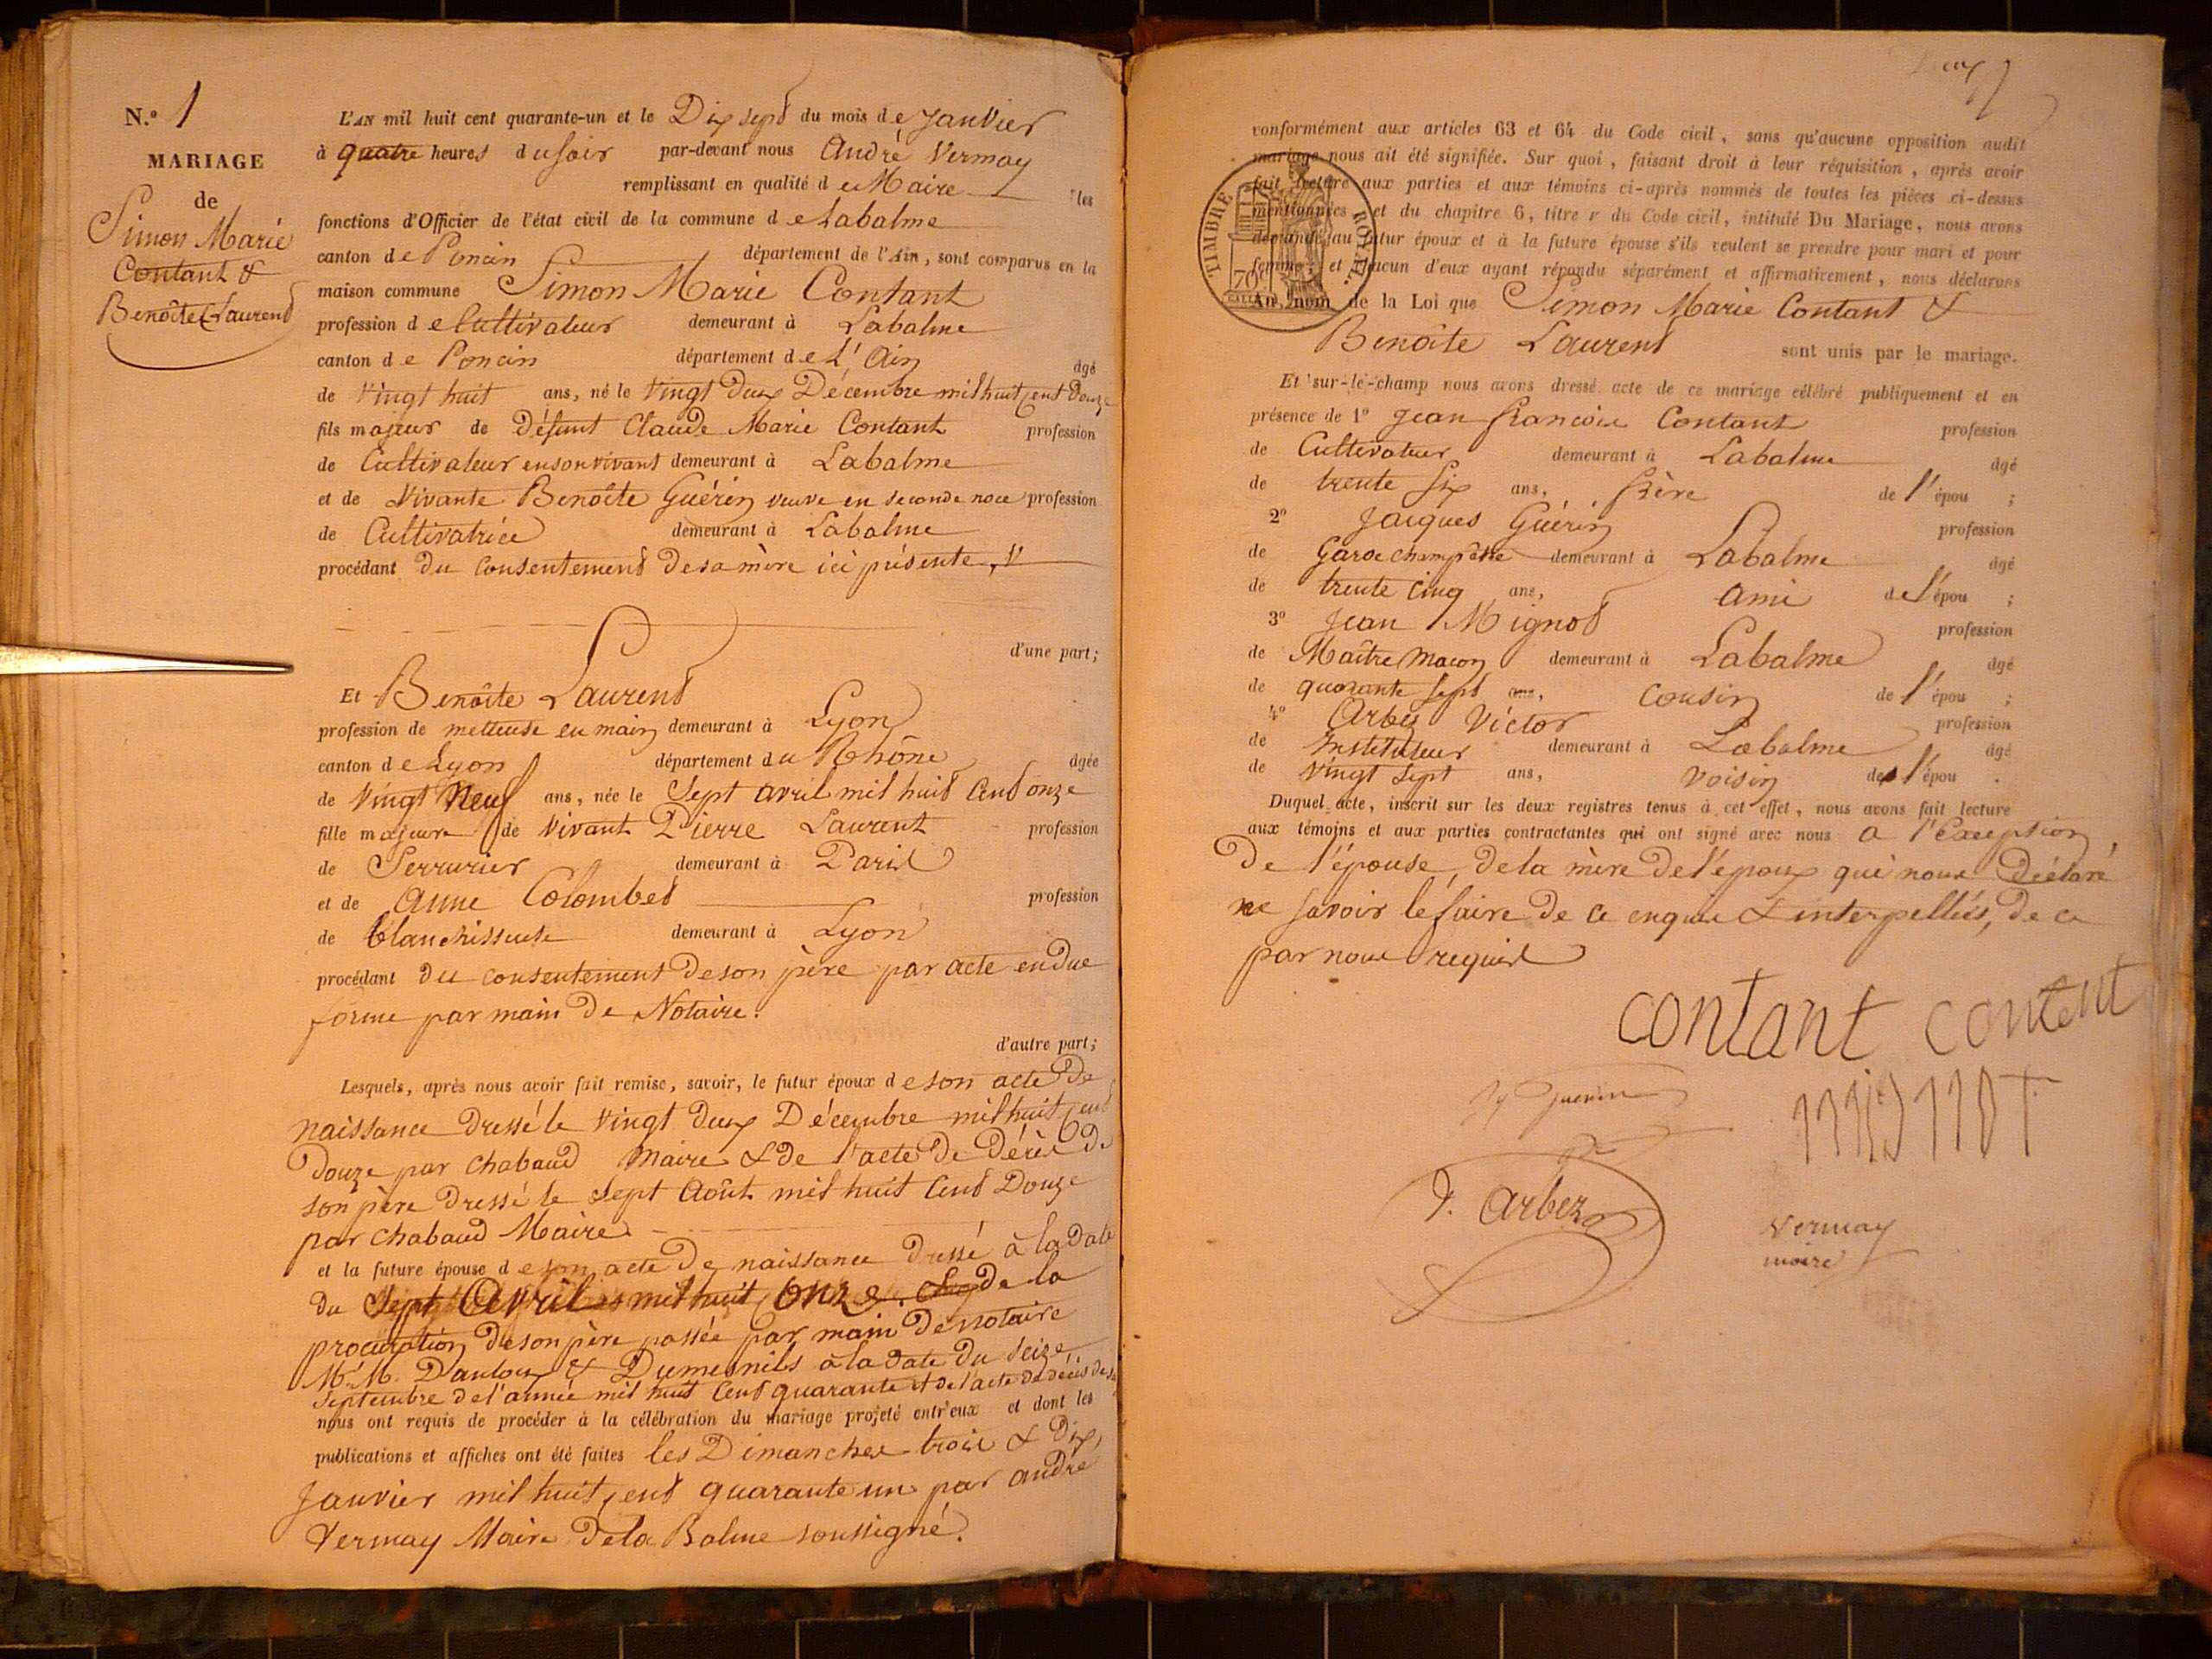 N.º 1
MARIAGE
de
Simon Marie
Contant &
Benoîte Laurend
L'AN mil huit cent quarante-un et le Dix sept du mois de Janvier
à quatre heures du soir par-devant nous André Vermay
remplissant en qualité de Maire les
fonctions d'Officier de l'état civil de la commune de Labalme
canton de Poncin département de l'Ain, sont comparus en la
maison commune Simon Marie Contant
profession de Cultivateur demeurant à Labalme
canton de Poncin département de L'Ain âgé
de Vingt huit ans, né le Vingt Deux Décembre mil huit cent Douze
fils majeur de Défunt Claude Marie Contant profession
de Cultivateur en son vivant demeurant à Labalme
et de Vivante Benoîte Guérin veuve en seconde noce profession
de Cultivatrice demeurant à Labalme
procédant du Consentement De sa mère ici présente,
d'une part;
Et Benoîte Laurend
profession de metteuse en main demeurant à Lyon
canton de Lyon département du Rhône âgée
de Vingt Neuf ans, née le Sept avril mil huit Cent onze
fille majeure de Vivant Pierre Laurent profession
de Serrurier demeurant à Paris
et de Anne Colombet profession
de blanchisseuse demeurant à Lyon
procédant du consentement De son père par acte en due
forme par main De Notaire.
d'autre part;
Lesquels, après nous avoir fait remise, savoir, le futur époux de son acte De
naissance Dressé le Vingt Deux Décembre mil huit cent
Douze par Chabaud Maire & de l'acte De Décès De
son père Dressé le Sept Août mil huit Cent Douze
par Chabaud Maire
et la future épouse de son acte De naissance Dressé à la Date
du Sept Avril mil huit onze. De la
procuration De son père passée par main De Notaire
M.M. & Dumesnils à la Date Du Seize
Septembre De l'année mil huit Cent quarante et De l'acte De décès De
nous ont requis de procéder à la célébration du mariage projeté entr'eux et dont les
publications et affiches ont été faites les Dimanches trois & Dix
Janvier mil huit cent quarante un par André
Vermay Maire De la Balme soussigné.
conformément aux articles 63 et 64 du Code civil, sans qu'aucune opposition audit
mariage nous ait été signifiée. Sur quoi, faisant droit à leur réquisition, après avoir
fait lecture aux parties et aux témoins ci-après nommés de toutes les pièces ci-dessus
mentionnées et du chapitre 6, titre v du Code civil, intitulé Du Mariage, nous avons
demandé au futur époux et à la future épouse s'ils veulent se prendre pour mari et pour
femme; et chacun d'eux ayant répondu séparément et affirmativement, nous déclarons
Au nom de la Loi que Simon Marie Contant &
TIMBRE ROYAL.
70
Benoîte Laurend sont unis par le mariage.
Et sur-le-champ nous avons dressé acte de ce mariage célébré publiquement et en
présence de 1º Jean francois Contant profession
de Cultivateur demeurant à Labalme âgé
de trente Six ans, frère de l'épou ;
2º Jacques Guérin profession
de Garde champêtre demeurant à Labalme âgé
de trente Cinq ans, ami de l'épou ;
3º Jean Mignot profession
de Maître Macon demeurant à Labalme âgé
de quarante Sept ans, Cousin de l'épou ;
4º Arbez Victor profession
de Instituteur demeurant à Labalme âgé
de Vingt Sept ans, voisin de l'épou .
Duquel acte, inscrit sur les deux registres tenus à cet effet, nous avons fait lecture
aux témoins et aux parties contractantes qui ont signé avec nous a l'Exception
De l'épouse, De la mère De l'époux qui nous Déclaré
ne savoir le faire De ce enquis & interpellés, De ce
par nous requis
contant content
Guerin
mignot
V. Arbez
Vermay
maire